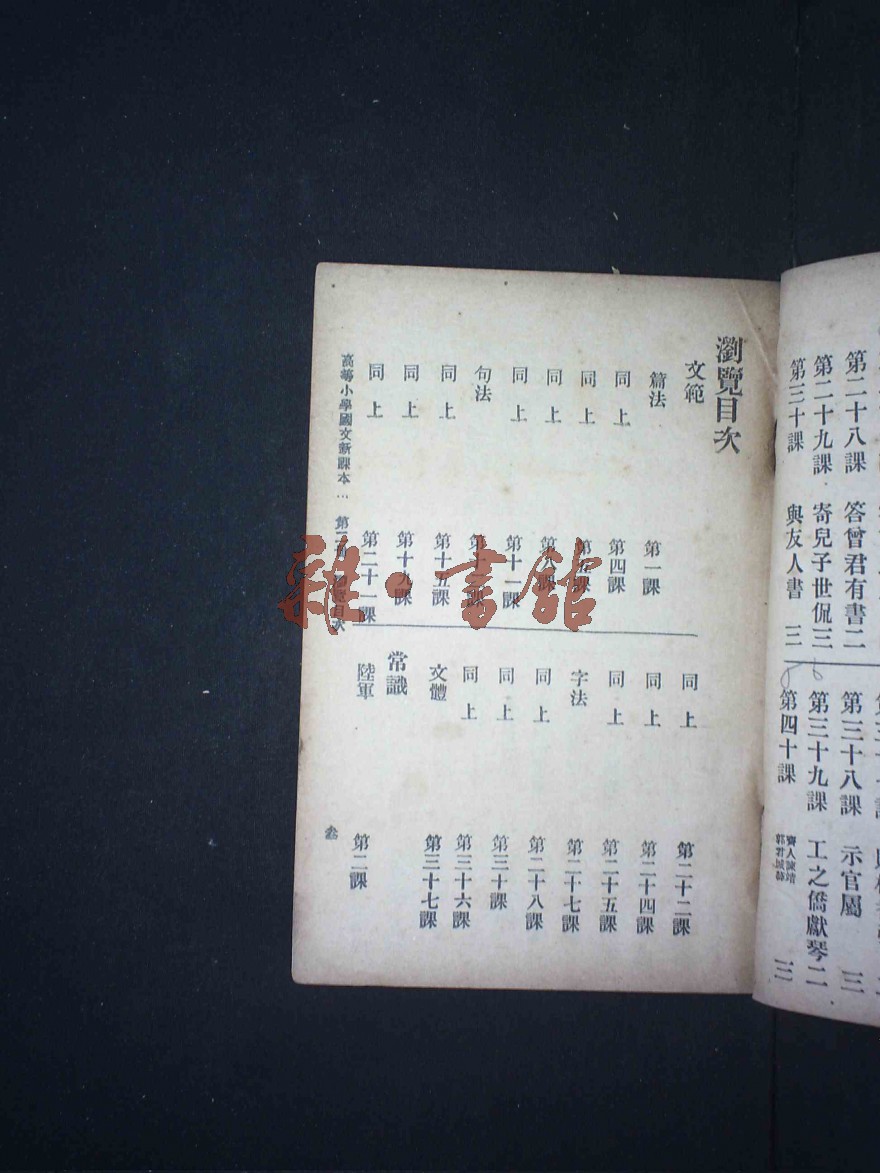 第二十八課 答曾君有書 二
第二十九課 寄兒子世侃 三
第三十課 與友人書 三
第三十八課 示官屬 三
第三十九課 工之僑獻琴 二
第四十課 齊人諫靖郭君城薛 三
瀏覽目次
文範
篇法 第一課
同上 第四課
同上 第五課
同上 第八課
同上 第十一課
句法
同上 第十五課
同上 第十九課
同上 第二十一課
同上 第二十二課
同上 第二十四課
同上 第二十五課
字法 第二十七課
同上 第二十八課
同上 第三十課
同上 第三十六課
文體 第三十七課
常識
陸軍 第二課
高等小學國文新課本… 目次 叁
雜·書館